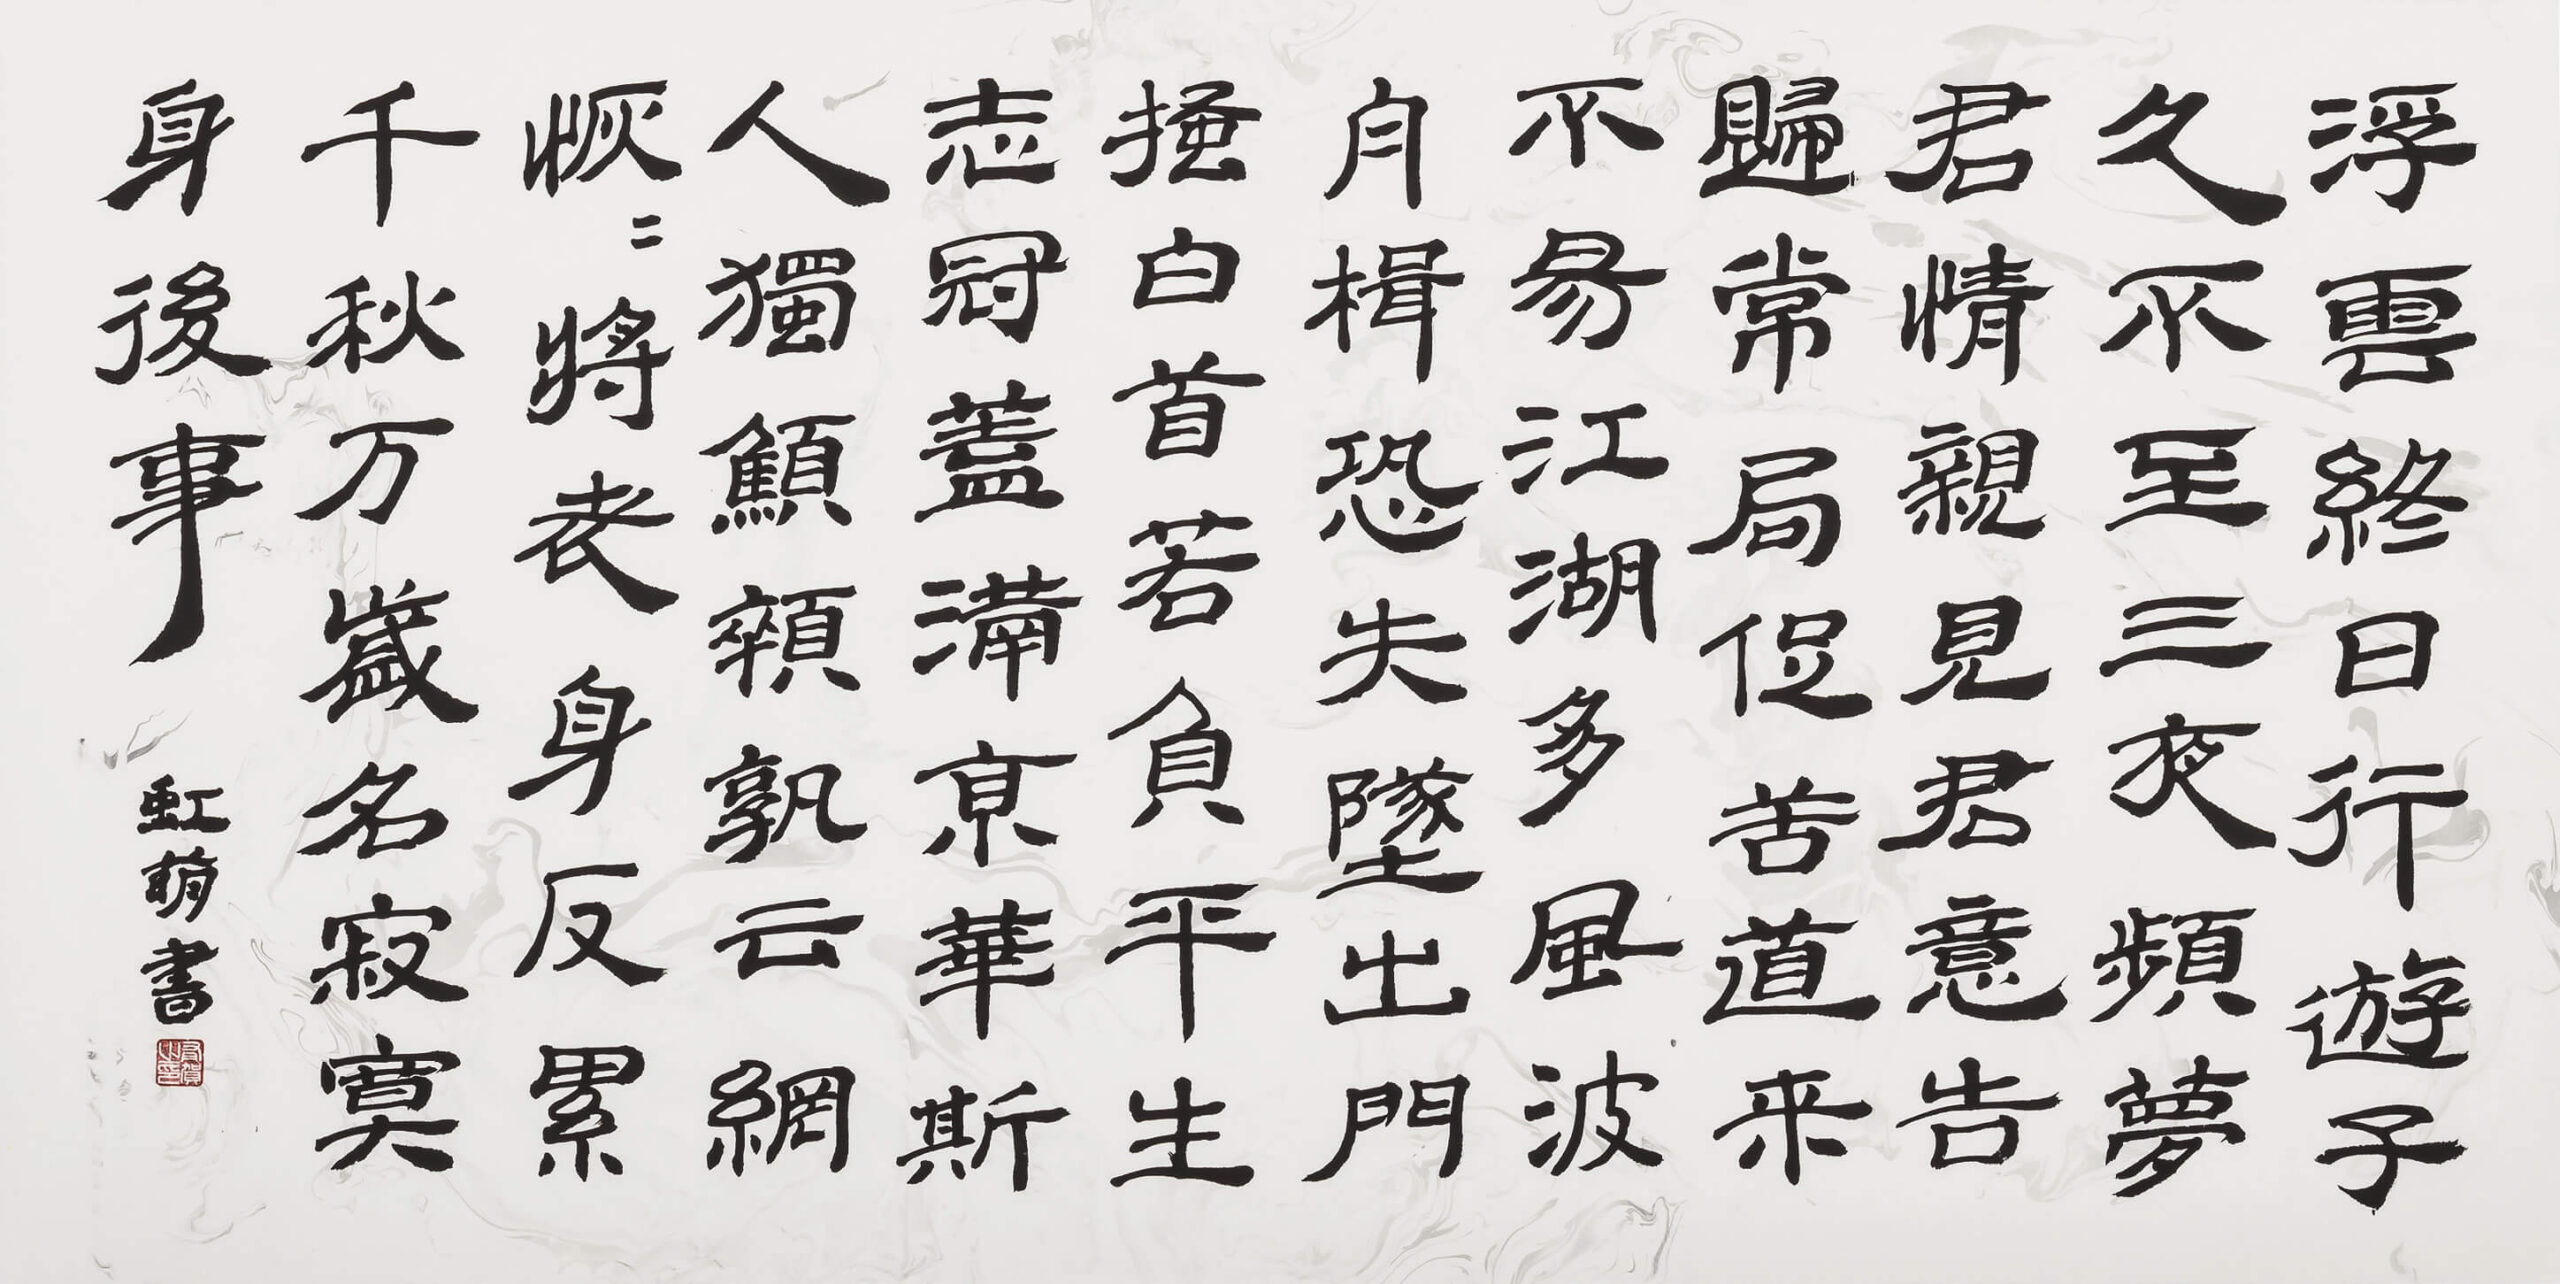 浮雲終日行遊子
久不至三夜頻夢
君情親見君意告
歸常局促苦道来
不易江湖多風波
舟楫恐失墜出門
掻白首若負平生
志冠蓋滿京華斯
人獨顦顇孰云網
恢〻將老身反累
千秋万歲名寂寞
身後事
虹萌書